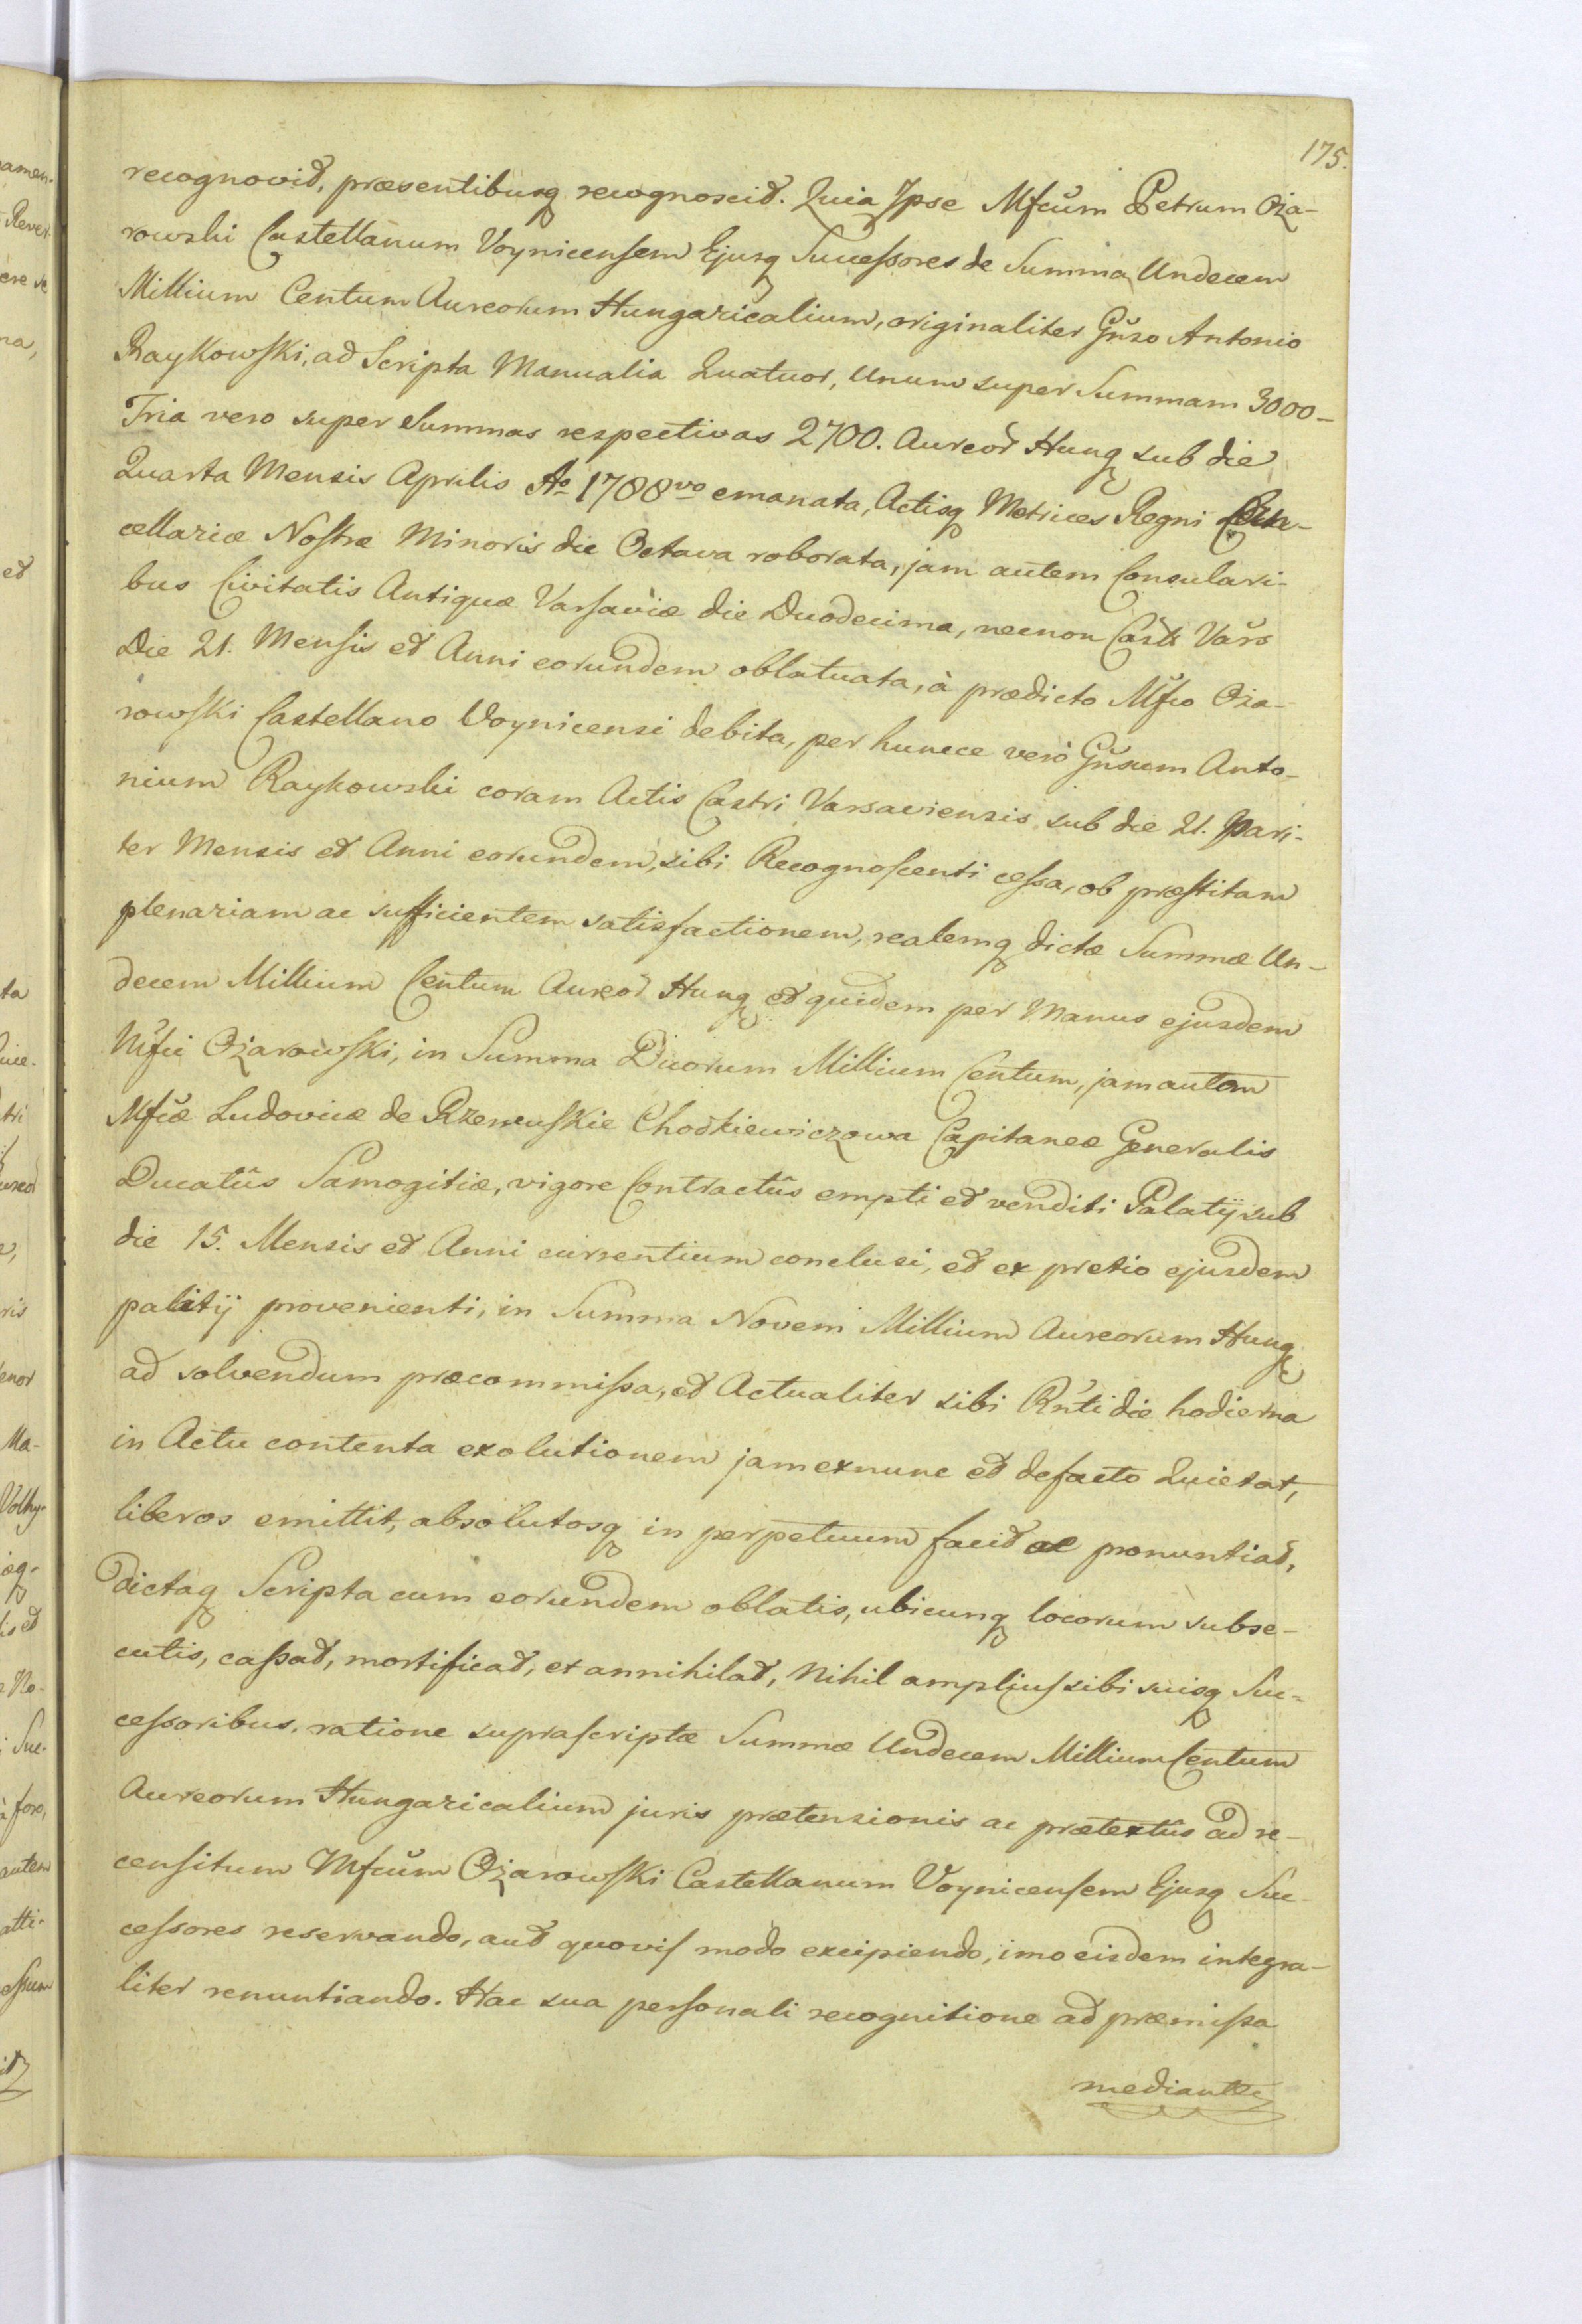 175.
recognovit, præsentibusq recognoscit. Quia Ipse Mfcum Petrum Oża-
rowski Castellanum Voynicensem Ejusq Successores de Summa Undecem
Millium Centum Aureorum Hungaricalium, originaliter Gnso Antonio
Raykowski, ad Scripta Manualia Quatuor, Unum super Summam 3000-
Tria vero super Summas respectivas 2700. Aureor Hung sub die
Quarta Mensis Aprilis Ao 1788vo emanata, Actisq Metrices Regni Can-
cellariæ Nostræ Minoris die Octava roborata, jam autem Consulari-
bus Civitatis Antiquæ Varsaviæ die Duodecima, necnon Castr Vars
Die 21. Mensis et Anni eorundem oblatuata, à prædicto Mfco Oża-
rowski Castellano Voynicensi debita, per huncce verò Gnsum Anto-
nium Raykowski coram Actis Castri Varsaviensis sub die 21. Pari-
ter Mensis et Anni eorundem, sibi Recognoscenti cessa, ob præstitam
plenariam ac sufficientem satisfactionem, realemq dictæ Summæ Un-
decem Millium Centum Aureor Hung et quidem per Manus ejusdem
Mfci Ożarowski, in Summa Duorum Millium Centum, jam autem
Mfcæ Ludovicæ de Rzewuskie Chodkiewiczowa Capitaneæ Generalis
Ducatûs Samogitiæ, vigore Contractûs empti et venditi Palatij sub
die 15. Mensis et Anni currentium conclusi, et ex pretio ejusdem
palatij provenienti, in Summa Novem Millium Aureorum Hung
ad solvendum præcommissa, et Actualiter sibi Rnti die hodierna
in Actu contenta exolutionem jam exnunc et defacto Quietat,
liberos emittit, absolutosq in perpetuum facit ac pronuntiat,
dictaq Scripta cum eorundem oblatis, ubicunq locorum subse-
cutis, cassat, mortificat, et annihilat, Nihil amplius sibi suisq Suc-
cessoribus, ratione suprascriptæ Summæ Undecem Millium Centum
Aureorum Hungaricalium juris prætensionis ac prætextûs ad re-
censitum Mfcum Ożarowski Castellanum Voynicensem Ejusq Suc-
cessores reservando, aut quovis modo excipiendo, imo eisdem integra-
liter renuntiando. Hac sua personali recognitione ad præmissa
mediante